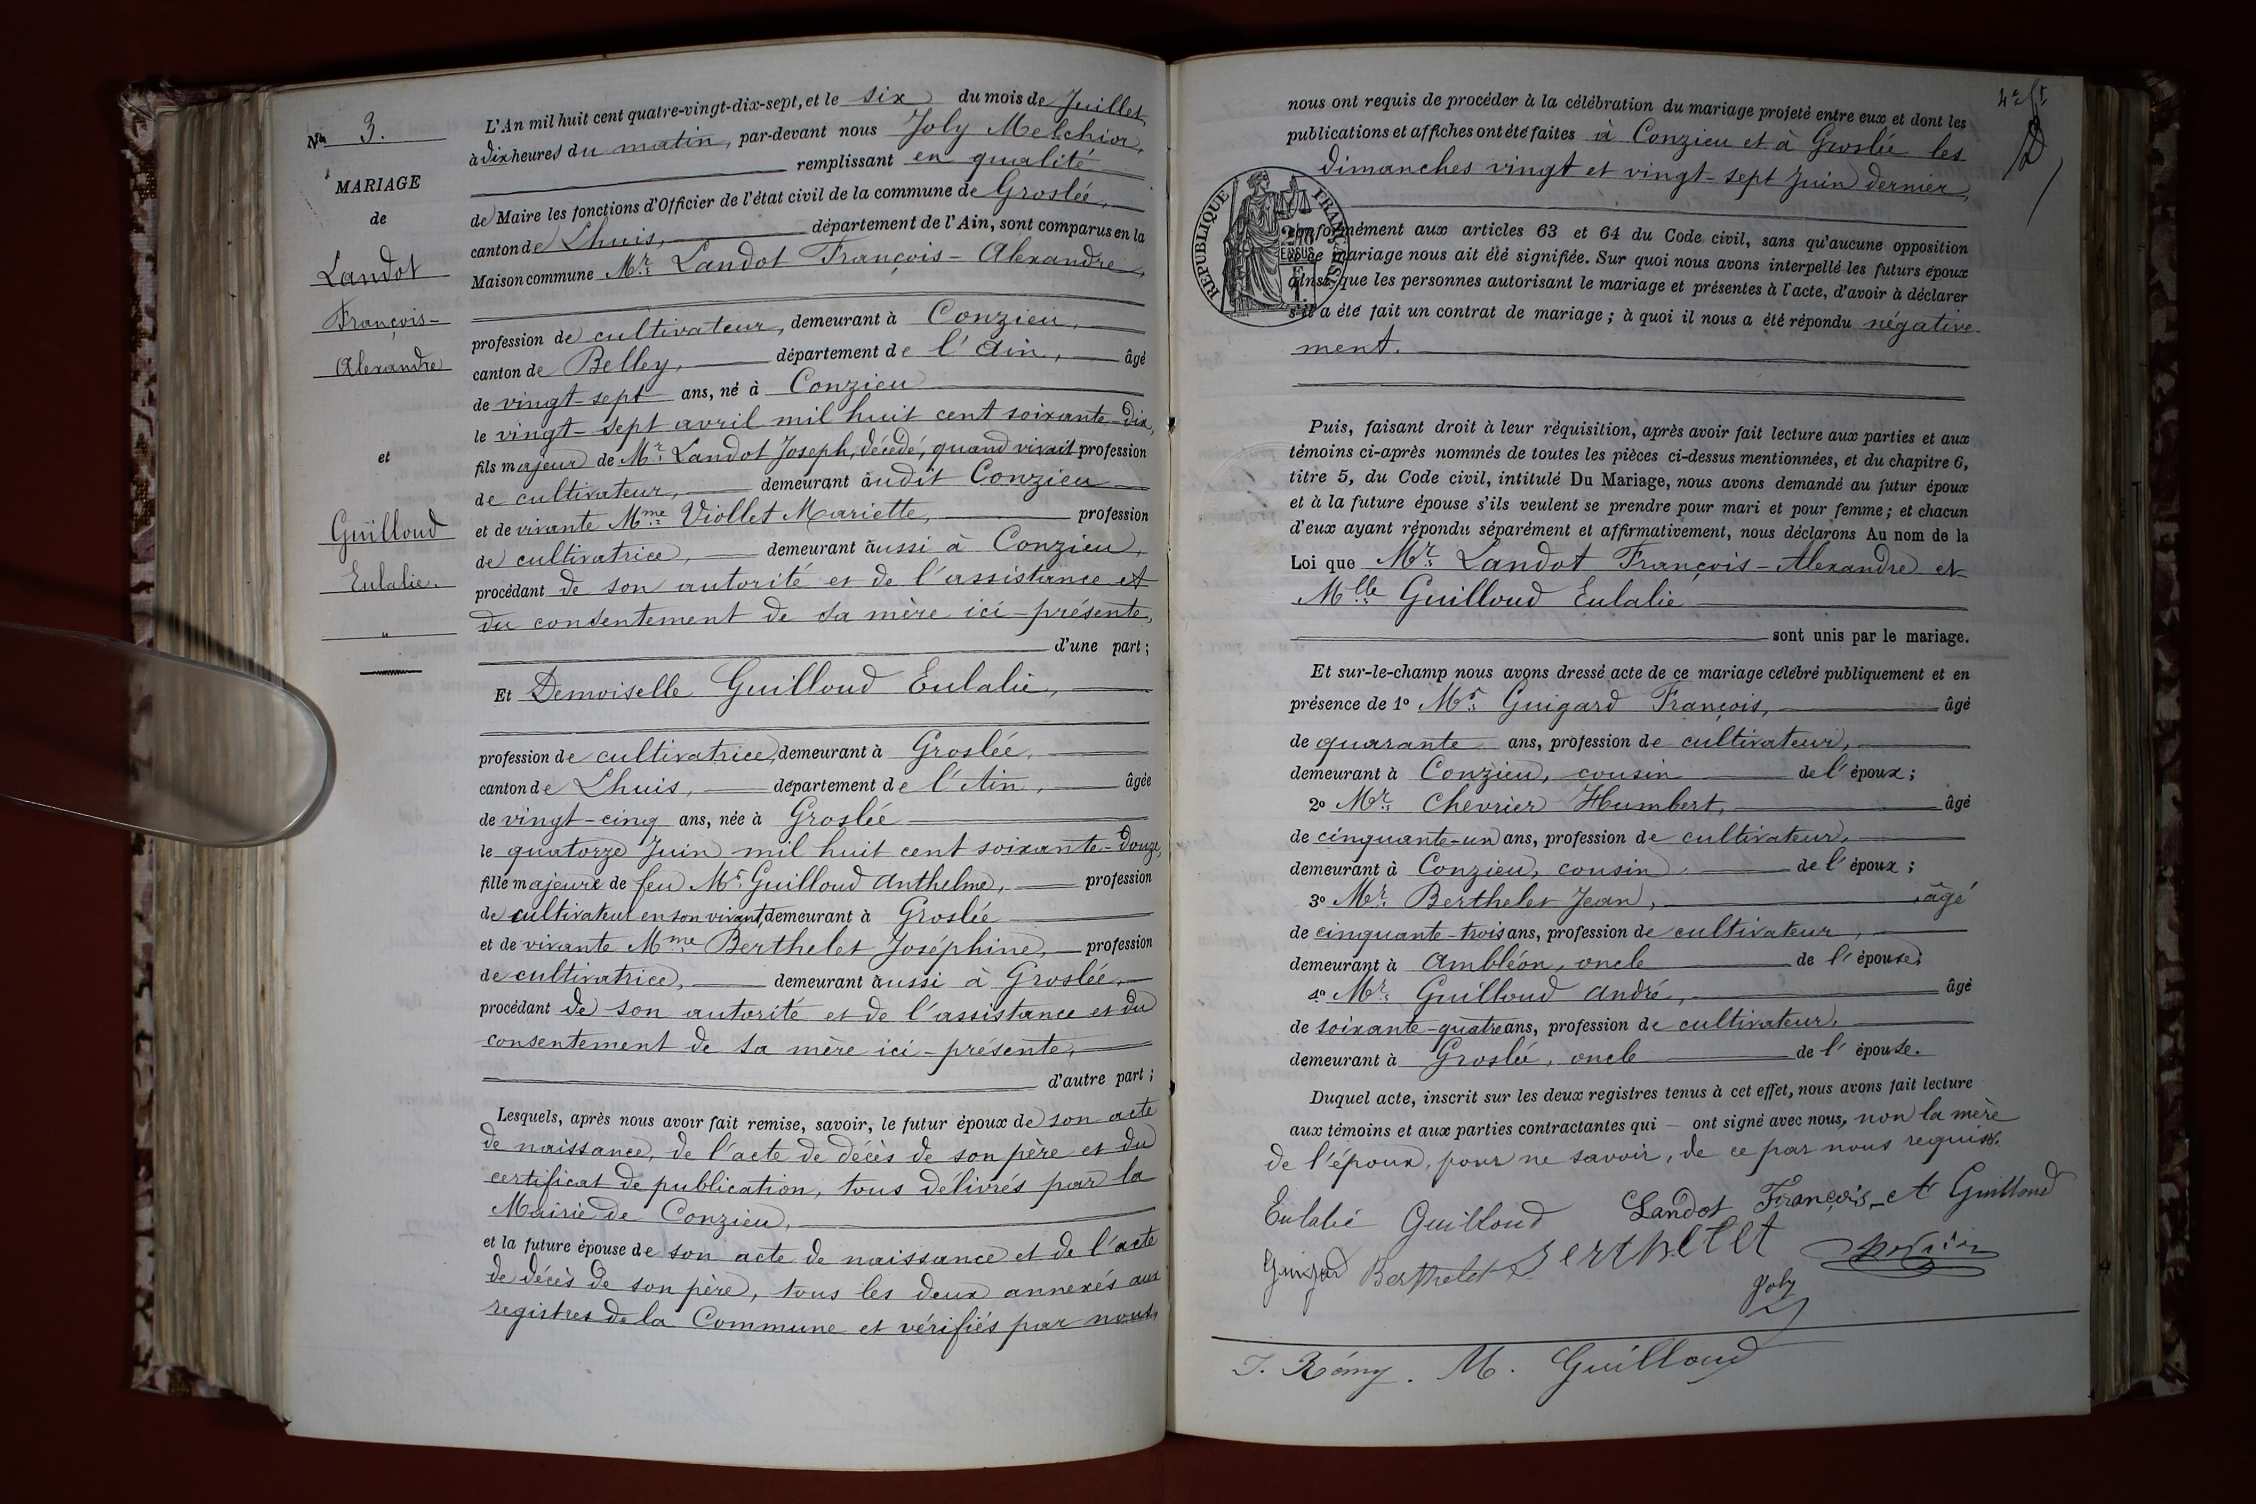 No 3.
MARIAGE
de
Landot
François-
Alexandre
et
Guilloud
Eulalie.
"
L'An mil huit cent quatre-vingt-dix-sept, et le six du mois de Juillet
à dix heures du matin, par-devant nous Joly Melchior,
remplissant en qualité
de Maire les fonctions d'Officier de l'état civil de la commune de Groslée,
canton de Lhuis, département de l'Ain, sont comparus en la
Maison commune Mr. Landot François-Alexandre,
profession de cultivateur, demeurant à Conzieu,
canton de Belley, département de l'Ain, âgé
de vingt-sept ans, né à Conzieu
le vingt-sept avril mil huit cent soixante-dix,
fils majeur de Mr. Landot Joseph, décédé, quand vivait profession
de cultivateur, demeurant audit Conzieu
et de vivante Mme Viollet Mariette, profession
de cultivatrice, demeurant aussi à Conzieu,
procédant de son autorité et de l'assistance et
du consentement de sa mère ici-présente,
d'une part;
Et Demoiselle Guilloud Eulalie,
profession de cultivatrice, demeurant à Groslée,
canton de Lhuis, département de l'Ain, âgée
de vingt-cinq ans, née à Groslée
le quatorze Juin mil huit cent soixante-douze,
fille majeure de feu Mr. Guilloud Anthelme, profession
de cultivateur en son vivant, demeurant à Groslée
et de vivante Mme Berthelet Joséphine, profession
de cultivatrice, demeurant aussi à Groslée,
procédant de son autorité et de l'assistance et du
consentement de sa mère ici-présente,
d'autre part;
Lesquels, après nous avoir fait remise, savoir, le futur époux de son acte
de naissance, de l'acte de décès de son père et du
certificat de publication, tous délivrés par la
Mairie de Conzieu,
et la future épouse de son acte de naissance et de l'acte
de décès de son père, tous les deux annexés aux
registres de la Commune et vérifiés par nous,
nous ont requis de procéder à la célébration du mariage projeté entre eux et dont les
publications et affiches ont été faites à Conzieu et à Groslée les
dimanches vingt et vingt-sept Juin dernier,
RÉPUBLIQUE FRANÇAISE
conformément aux articles 63 et 64 du Code civil, sans qu'aucune opposition
audit mariage nous ait été signifiée. Sur quoi nous avons interpellé les futurs époux
ainsi que les personnes autorisant le mariage et présentes à l'acte, d'avoir à déclarer
s'il a été fait un contrat de mariage; à quoi il nous a été répondu négative-
ment.
Puis, faisant droit à leur réquisition, après avoir fait lecture aux parties et aux
témoins ci-après nommés de toutes les pièces ci-dessus mentionnées, et du chapitre 6,
titre 5, du Code civil, intitulé Du Mariage, nous avons demandé au futur époux
et à la future épouse s'ils veulent se prendre pour mari et pour femme; et chacun
d'eux ayant répondu séparément et affirmativement, nous déclarons Au nom de la
Loi que Mr. Landot François-Alexandre et
Mlle Guilloud Eulalie
sont unis par le mariage.
Et sur-le-champ nous avons dressé acte de ce mariage célébré publiquement et en
présence de 1o Mr. Guigard François, âgé
de quarante ans, profession de cultivateur,
demeurant à Conzieu, cousin de l'époux;
2o Mr. Chevrier Humbert, âgé
de cinquante-un ans, profession de cultivateur,
demeurant à Conzieu, cousin de l'époux;
3o Mr. Berthelet Jean, âgé
de cinquante-trois ans, profession de cultivateur,
demeurant à Ambléon, oncle de l'épouse;
4o Mr. Guilloud André, âgé
de soixante-quatre ans, profession de cultivateur,
demeurant à Groslée, oncle de l'épouse.
Duquel acte, inscrit sur les deux registres tenus à cet effet, nous avons fait lecture
aux témoins et aux parties contractantes qui — ont signé avec nous, non la mère
de l'époux, pour ne savoir, de ce par nous requise.
Eulalie Guilloud Landot François-A Guilloud
Guigard Berthelet Berthelet
Joly
J. Rémy. M. Guilloud